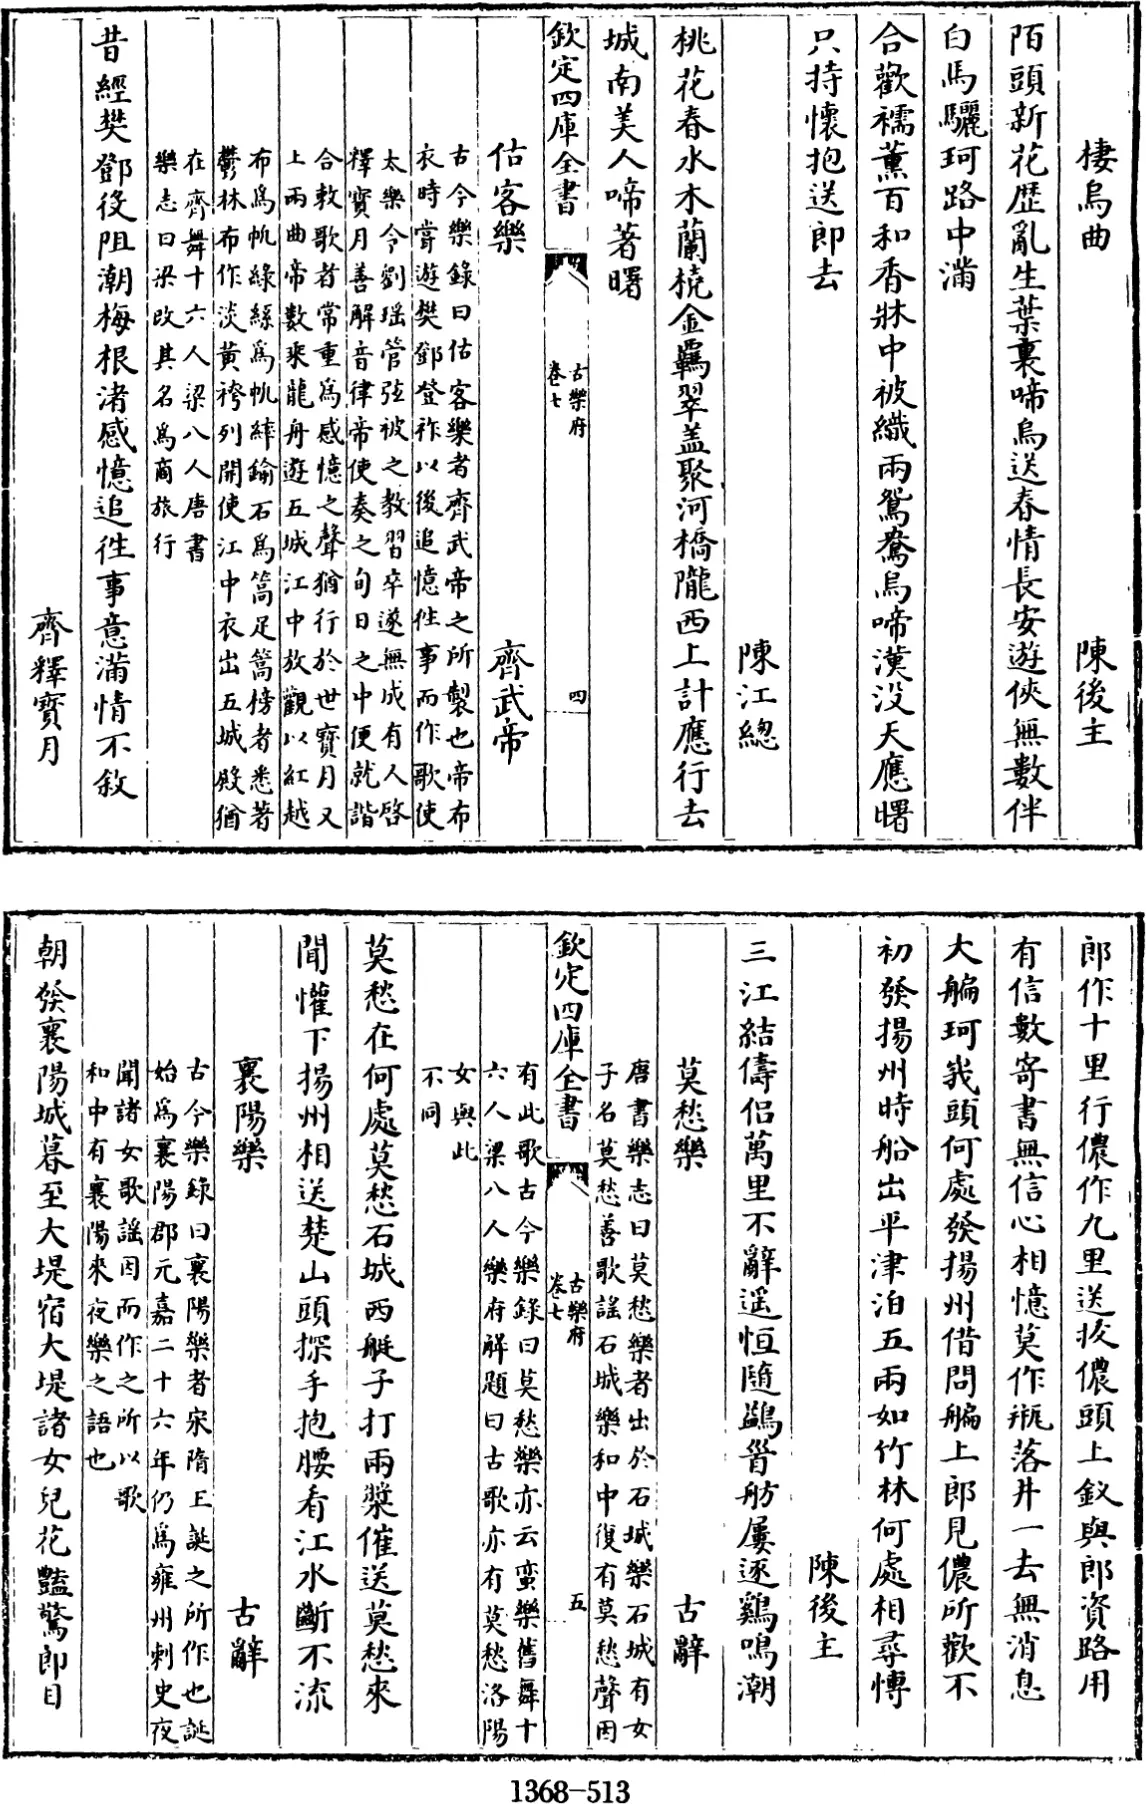 棲烏曲 陳後主
陌頭新花歴亂生葉裏啼烏送春情長安遊俠無數伴
白馬驪珂路中滿
合歡襦薰百和香牀中被織兩鴛鴦烏啼漢没天應曙
只持懷抱送郎去
陳江總
桃花春水木蘭橈金羈翠盖聚河橋隴西上計應行去
城南美人啼著曙
欽定四庫全書 古樂府 卷七 四
估客樂 齊武帝
古今樂録曰估客樂者齊武帝之所製也帝布
衣時嘗遊樊鄧登祚以後追憶徃事而作歌使
太樂令劉瑶管弦被之教習卒遂無成有人啓
釋寳月善解音律帝使奏之旬日之中便就諧
合敕歌者常重爲感憶之聲猶行於世寳月又
上兩曲帝數乘龍舟遊五城江中放觀以紅越
布爲帆緑絲爲帆繂鍮石爲篙足篙榜者悉著
鬱林布作淡黄袴列開使江中衣出五城殿猶
在齊舞十六人梁八人唐書
樂志曰梁改其名爲商旅行
昔經樊鄧役阻潮梅根渚感憶追徃事意滿情不敘
齊釋寳月
郎作十里行儂作九里送拔儂頭上釵與郎資路用
有信數寄書無信心相憶莫作瓶落井一去無消息
大艑珂峩頭何處發揚州借問艑上郎見儂所歡不
初發揚州時船出平津泊五兩如竹林何處相尋愽
陳後主
三江結儔侣萬里不辭遥恒隨鷁首舫屢逐鷄鳴潮
莫愁樂 古辭
唐書樂志曰莫愁樂者出於石城樂石城有女
子名莫愁善歌謡石城樂和中復有莫愁聲因
欽定四庫全書 古樂府 卷七 五
有此歌古今樂録曰莫愁樂亦云蠻樂舊舞十
六人梁八人樂府解題曰古歌亦有莫愁洛陽
女與此
不同
莫愁在何處莫愁石城西艇子打兩槳催送莫愁來
聞懽下揚州相送楚山頭探手抱腰看江水斷不流
襄陽樂 古辭
古今樂録曰襄陽樂者宋隋王誕之所作也誕
始爲襄陽郡元嘉二十六年仍爲雍州刺史夜
聞諸女歌謡因而作之所以歌
和中有襄陽來夜樂之語也
朝發襄陽城暮至大堤宿大堤諸女兒花豔驚郎目
1368-513